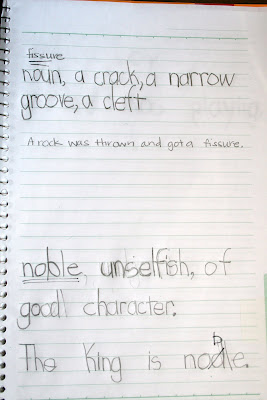 fissure
noun, a crack, a narrow
groove, a cleft
A rock was thrown and got a fissure.
noble, unselfish, of
good character.
The King is noble.